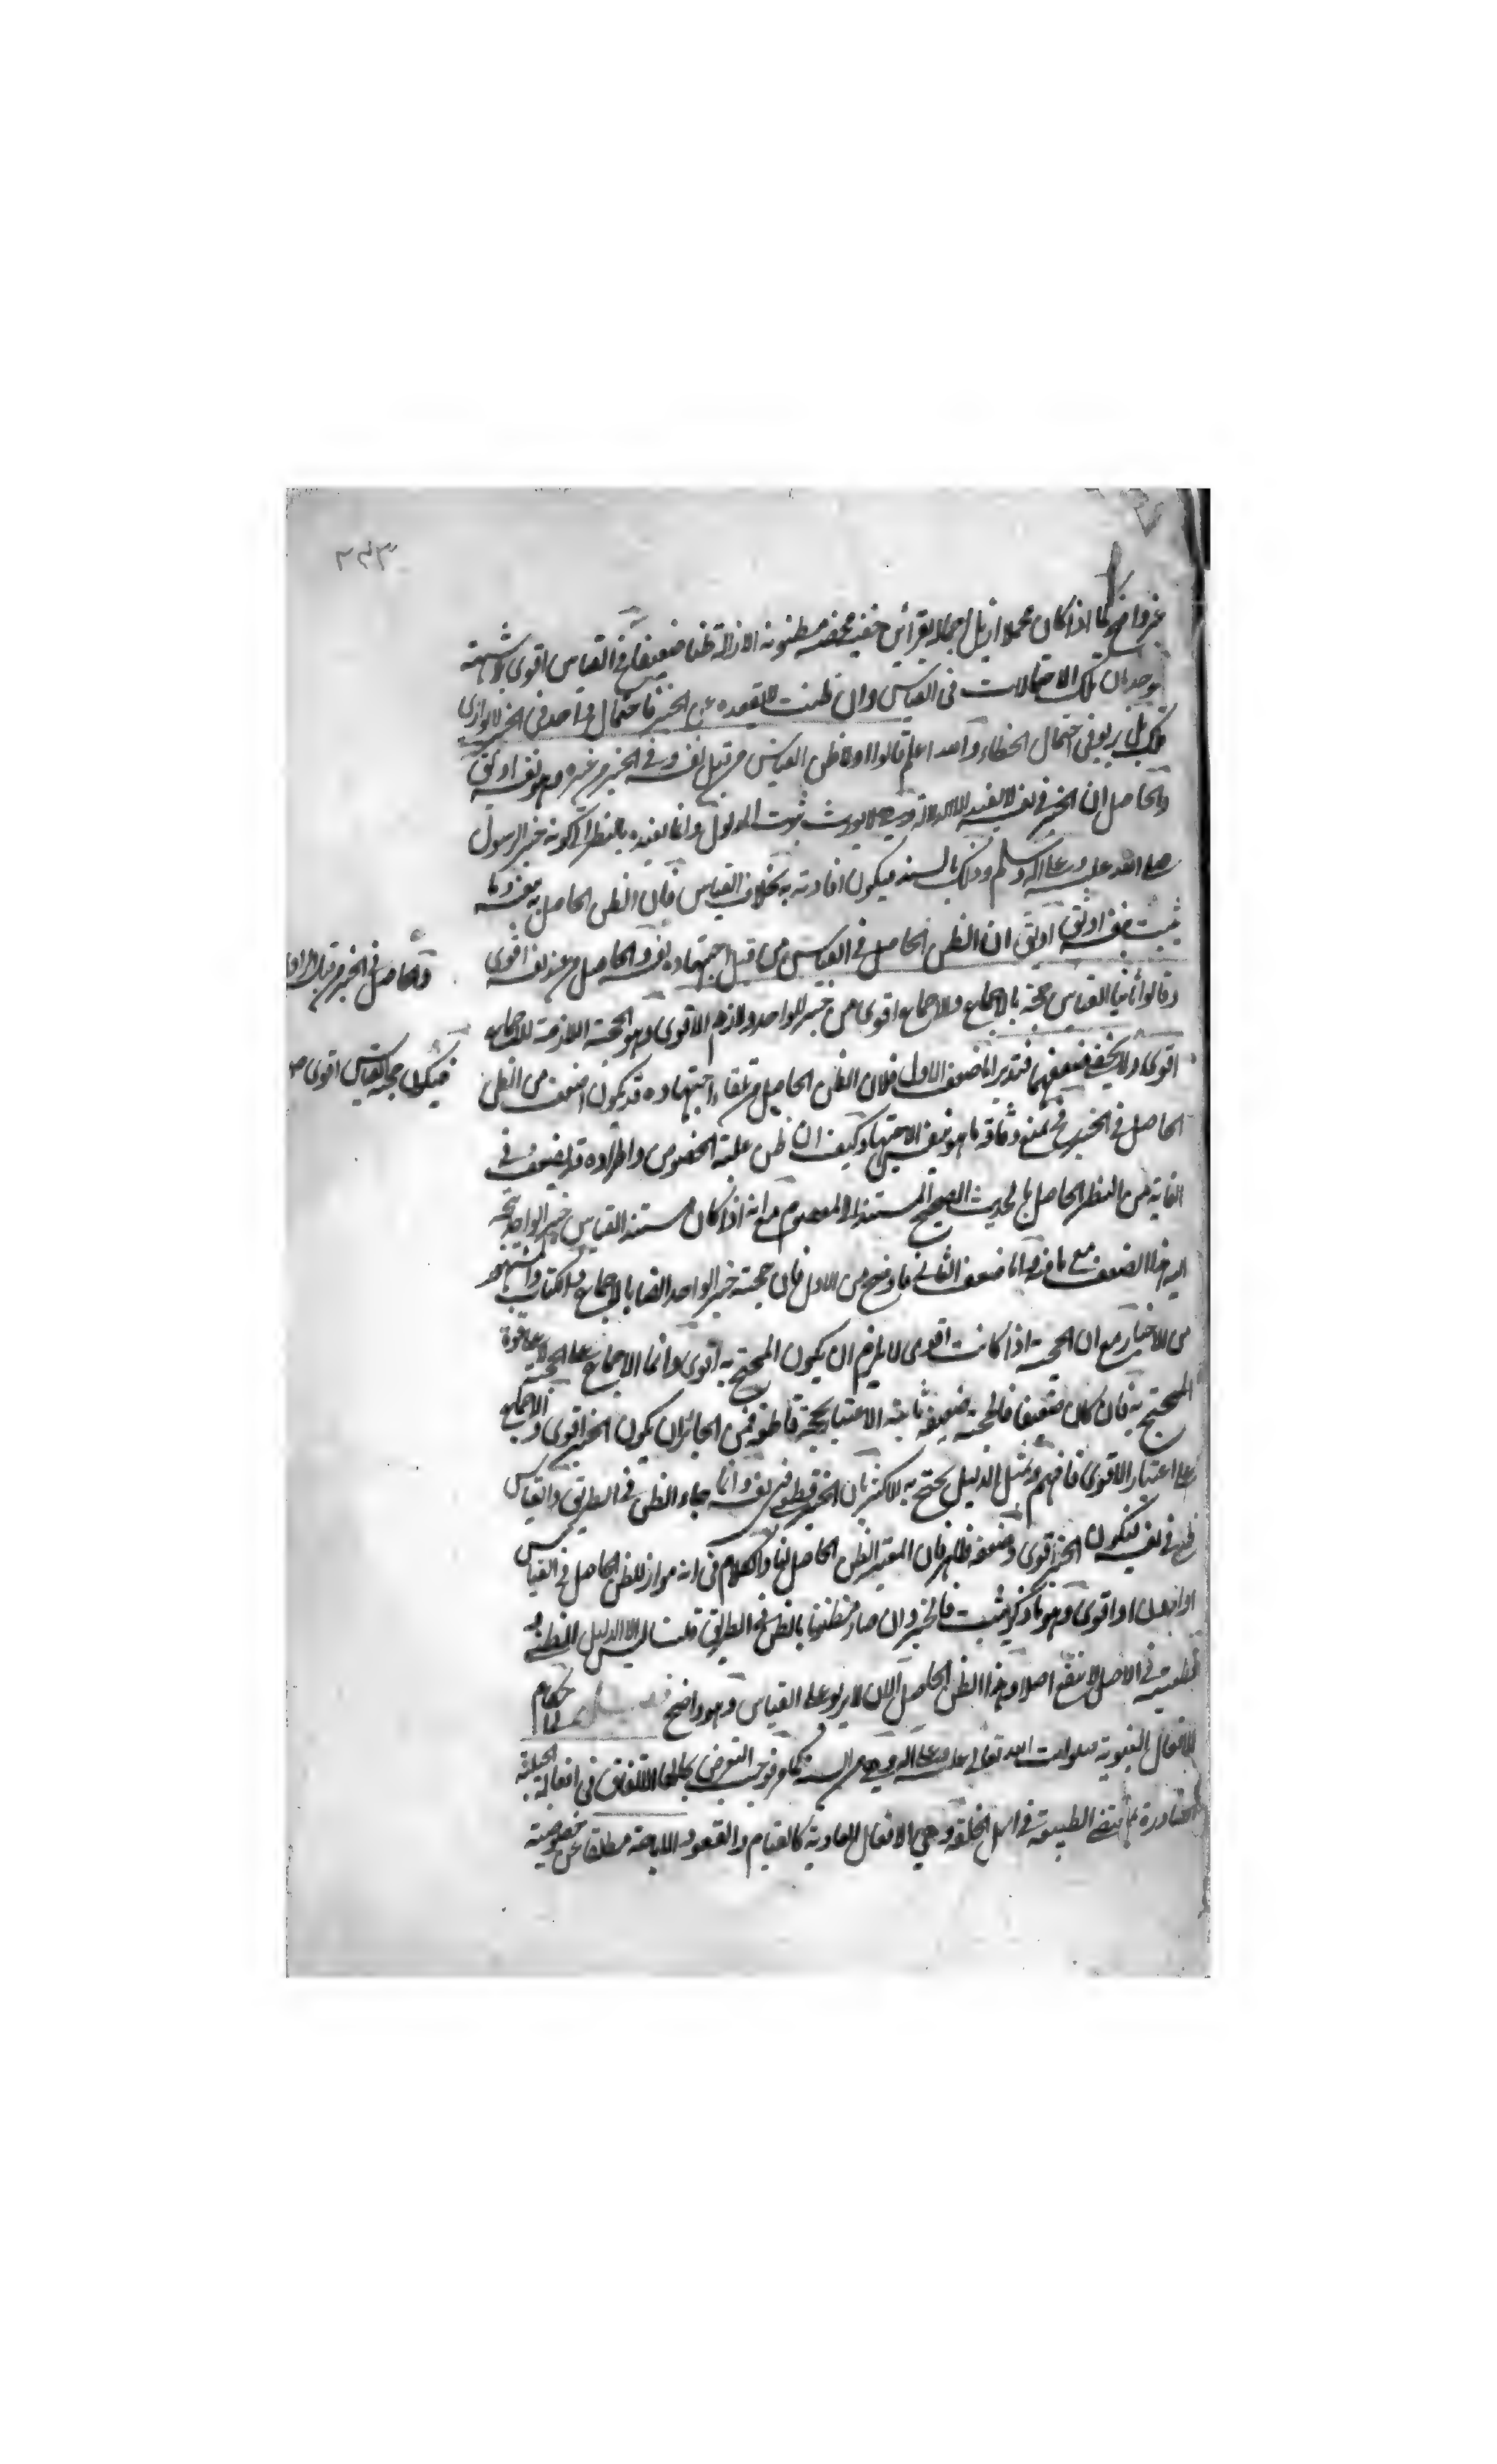 ٣٤٣
غير واضح كما اذا كان مجملا ازيل اجماله بقرائن خفية محضة مظنونة الازالة ظنا ضعيفا ففي القياس اقوى
يوجد ان تلك الاحتمالات في القياس وان ظنت للتعدد عن الخبر فاحتمال واحد في الخبر لا يوازي
تلك بل يربو في احتمال الخطاء والله اعلم قالوا اولا ظن القياس من قبل نفسه وفي الخبر من غيره وهو بنفسه اوثق
والحاصل ان الخبر في نفسه لا يفيد الا الدلالة وهي لا يورث ثبوت المدلول وانما يفيده بالنظر الى كونه خبر الرسول
صلى الله عليه وعلى اله وسلم وذلك بالسند فيكون افادته به بخلاف القياس فان الظن الحاصل به
ثبت بنفسه اوثق ان الظن الحاصل في القياس من قبل اجتهاده بنفسه والحاصل من عند نفسه اقوى
وقالوا ثانيا القياس حجة بالاجماع والاجماع اقوى من خبر الواحد ولازم الاقوى وهو الحجة اللازمة للاجماع
اقوى ولا يخفى ضعفهما فتدبر اما ضعف الاول فلان الظن الحاصل من تلقاء اجتهاده قد يكون اضعف من الظن
الحاصل في الخبر فيمنع وثاقة ما هو بنفس الاجتهاد وكيف ان ظن علية الخصوص واطراده قد يضعف في
الغاية من النظر الحاصل بالحديث الصحيح المستند الى المعصوم مع انه اذا كان مستند القياس خبر الواحد يتجه
اليه هذا الضعف مع ما فيه واما ضعف الثاني فاوضح من الاول فان حجية خبر الواحد ايضا بالاجماع والكتاب والمشهور
من الاخبار مع ان الحجية اذا كانت اقوى لا يلزم ان يكون المحتج به اقوى وانما الاجماع على الحجية لا على قوة
المحتج به فان كان ضعيفا فالحجة ضعيفة ثابتة الاعتبار بحجة قاطعة فمن الجائز ان يكون الخبر اقوى والاجماع
على اعتبار الاقوى فافهم وبمثل الدليل يحتج به للاكثر بان الخبر قطعي في نفسه وانما جاء الظن في الطريق والقياس
ظني في نفسه فيكون الخبر اقوى وضعفه ظاهر فان المعتبر الظن الحاصل لنا والكلام في انه مواز للظن الحاصل في القياس
او اضعف او اقوى وهو بما ذكر لا يثبت فالخبر وان صار مظنونا بالظن في الطريق قلت ليس الا الدليل الظني و
قطعيته في الاصل لا ينفع اصلا وهذا الظن الحاصل الان لا يربو على القياس وهو واضح
للافعال النبوية صلوات الله تعالى عليه وعلى اله وهي من السنة كما مر فوجب التعرض بحالها الاتفاق في افعاله الجبلية
الصادرة بمقتضى الطبيعة في اصل الخلقة وهي الافعال العادية كالقيام والقعود الاباحة مطلقا عن خصوصية
والحاصل في الخبر من قبل
فيكون حجية القياس اقوى